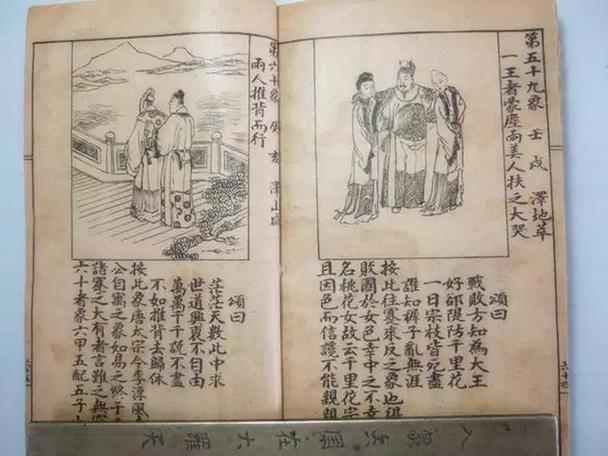 第五十九象 壬戌 澤地萃
一王者蒙塵兩美人扶之大哭
頌曰
戰敗方知為大王
好卻隄防千里花
一日宗枝皆宛盡
誰知子亂無涯
按此往蹇求反之象也得
敗國於女色幸中之不幸
名桃花女故云千里花宗
且因色而信讒不能親親
六十四
第六十象 癸亥 澤山
兩人推背而行
頌曰
茫茫天數此中求
世道興衰不自由
萬萬千千說不盡
不如推背去歸休
按此象唐太宗令李淳風
公自寓之象如易之終于
諸蹇之大有者言雖之無
六十者象六甲五配五子
在大羅天